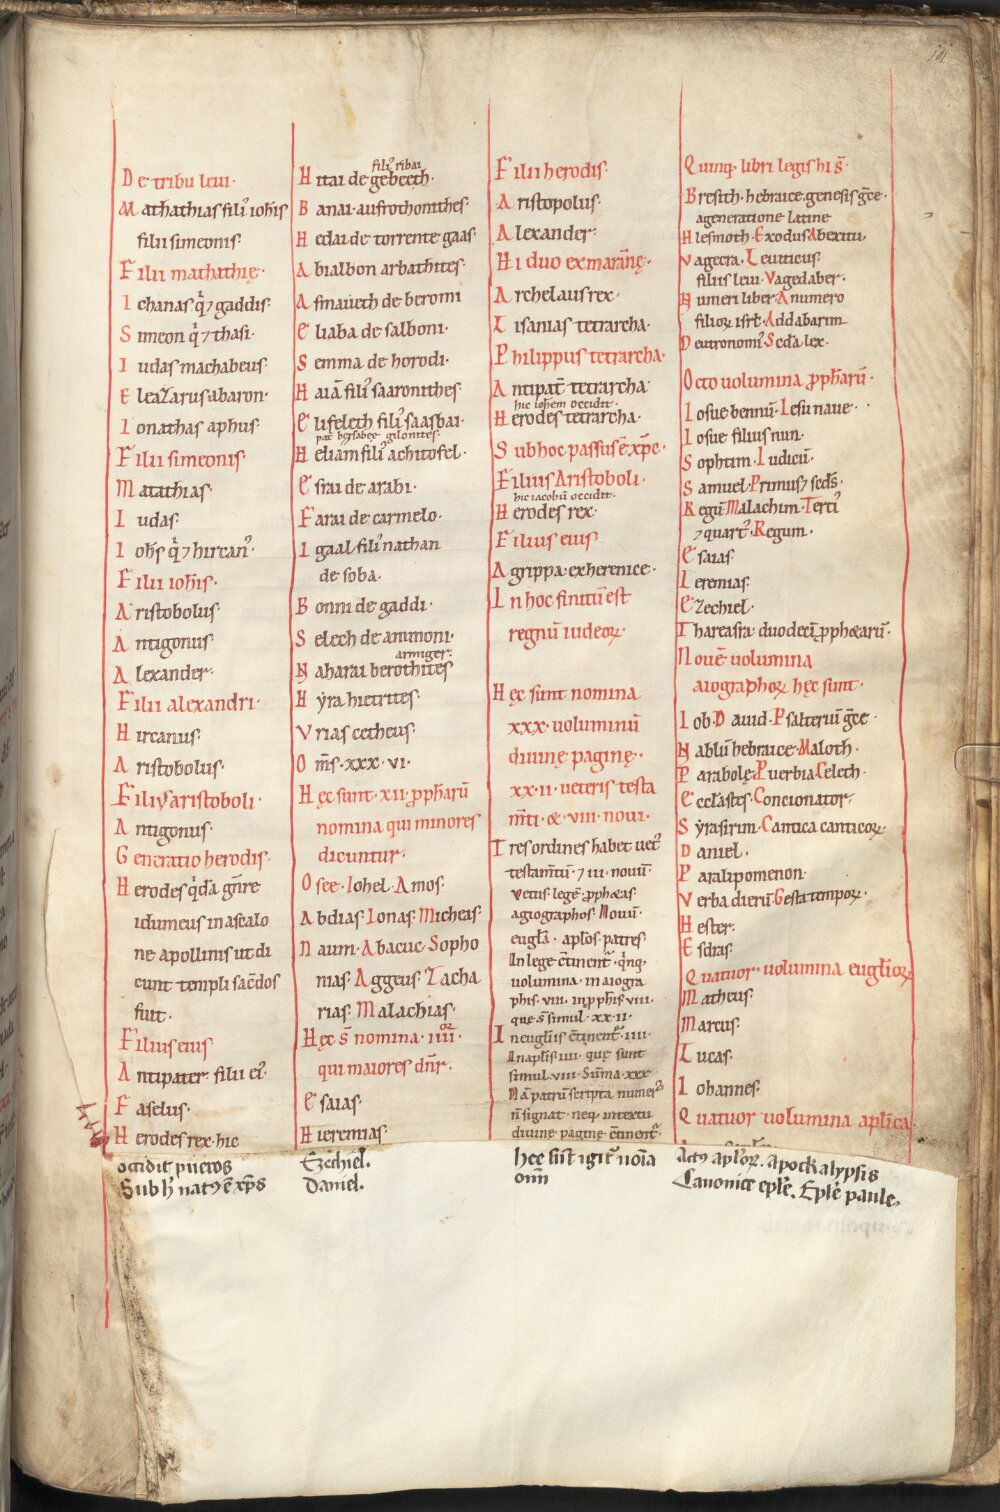 De tribu leui·
Mathathias filiꝰ ioh̅is
filii simeonis·
Filii mathathię·
Ichanas· q̅i ⁊ gaddis·
Simeon q̅i ⁊ thasi·
Iudas machabeus·
Eleazarus abaron·
Ionathas aphus·
Filii simeonis·
Matathias·
Iudas·
Ioh̅s q̅i ⁊ hircanꝰ·
Filii ioh̅is·
Aristobolus·
Antigonus·
Alexander·
Filii alexandri·
Hircanus·
Aristobolus·
Filius aristoboli·
Antigonus·
Generatio herodis·
Herodes q̅da̅ gn̅re
idumeus in ascalo
ne apollinis ut di
cunt templi sac̅dos
fuit·
Filius eius
Antipater· filii eiꝰ·
Faselus·
Herodes rex· hic
occidit pueros
Sub h̅ natꝰ e̅ xp̅s
filiꝰ ribai
Hitai de gebeeth·
Banai· aufrothonithes·
Hedai de torrente gaas·
Abialbon arbathites·
Asmaueth de beromi
Eliaba de salboni·
Semma de horodi·
Haia̅ filiꝰ saaronithes·
Elifeleth filiꝰ saasbai·
pat̅ bersabee gilonites·
Heliam filiꝰ achitofel·
Esrai de arabi·
Farai de carmelo·
Igaal filiꝰ nathan
de soba·
Bonni de gaddi·
Selech de ammoni·
armiger·
Naharai berothites
Hẏra hietrites·
Vrias cetheus·
Om̅s· xxx· vi·
Hęc sunt· xii· ꝓphar̅u
nomina qui minores
dicuntur·
Osee· Iohel· Amos·
Abdias· Ionas· Micheas·
Naum· Abacuc· Sopho
nias· Aggeus· Zacha
rias· Malachias·
Hęc s̅ nomina· iiiior·
qui maiores dn̅r·
Esaias·
Hieremias·
Ezechiel.
Daniel.
Filii herodis·
Aristopolus·
Alexander·
Hi duo ex maran̅ę·
Archelaus rex·
Lisanias tetrarcha·
Philippus tetrarcha·
Antipat̅ tetrarcha·
hic ioh̅em occidit·
Herodes tetrarcha·
Sub hoc passus e̅ xp̅c·
Filius Aristoboli·
hic iacobu̅ occidit·
Herodes rex·
Filius eius
Agrippa· ex herenice·
In hoc finitu̅ est
regnu̅ iudeoꝝ·
Hęc sunt nomina
xxx· uoluminu̅
diuinę paginę·
xx·ii· ueteris testa
m̅ti· & viii· noui·
Tres ordines habet uet̅ꝰ
testam̅tu̅· ⁊ iii· nouu̅·
Vetus· lege̅· ꝓphetas·
agiographos· Nouu̅·
eugl̅a· apl̅os· patres·
In lege c̅tinent̅· q̅nq·
uolumina· in aiogra
phis· viii· in ꝓphis· viii·
que s̅ simul· xx·ii·
In eugl̅iis c̅tinent̅· iiii·
In apl̅is iiii· quę sunt
simul viii· Su̅ma· xxx·
Na̅ patru̅ scripta numerꝰ
n̅ signat· neq· intextu
diuinę paginę c̅tinent̅·
hęc su̅t igit̅ no̅ia
om̅
Quinq· libri legis hi s̅·
Bresith· hebraice· genesis gr̅ce·
a generatione latine
Hlesmoth· Exodus Ab exitu·
Vagecra· Leuiticus
filiis leui· Vagedaber·
Numeri liber· A numero
filioꝝ isrl̅· Addabarim
Deutronomiꝰ· Sed̅a lex·
Octo uolumina ꝓphar̅u·
Iosue bennu̅· Iesu naue·
Iosue filius nun·
Sophtim· Iudicu̅·
Samuel· Primus ⁊ sed̅s·
Regu̅ Malachim· Terciꝰ
⁊ quartꝰ· Regum·
Esaias·
Ieremias·
Ezechiel·
Thareasra· duodeci̅ ꝓphetaru̅·
Noue̅ uolumina
aiographoꝝ hęc sunt·
Iob· Dauid· Psalteriu̅ gr̅ce·
Nablu̅ hebraice· Maloth·
Parabolę· Puerbia· Celech·
Eccl̅astes· Concionator·
Sẏrasirim· Cantica canticoꝝ·
Daniel·
Paralipomenon·
Verba dieru̅· Gesta tempoꝝ·
Hester·
Esdras·
Quatuor· uolumina eugl̅ioꝝ
Matheus·
Marcus·
Lucas·
Iohannes·
Quatuor uolumina apl̅ica·
Actꝰ apl̅oꝝ. Apockalypsis
Canonice epl̅e. Epl̅e paule.